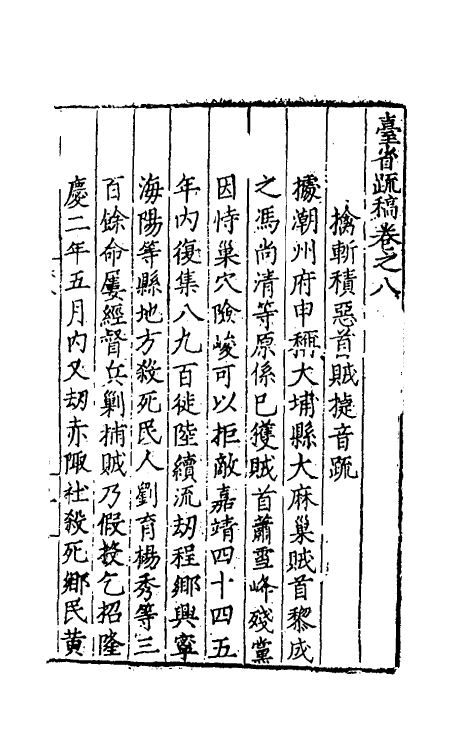 臺省疏稿卷之八
擒斬積惡首賊㨗音疏
據潮州府申稱大埔縣大麻巢賊首黎成
之馮尚清等原係已獲賊首蕭雪峰殘黨
因恃巢穴險峻可以拒敵嘉靖四十四五
年内復集八九百徒陸續流刼程鄉興寧
海陽等縣地方殺死民人劉育楊秀等三
百餘命屢經督兵剿捕賊乃假投乞招隆
慶二年五月内又刼赤陬社殺死鄉民黄